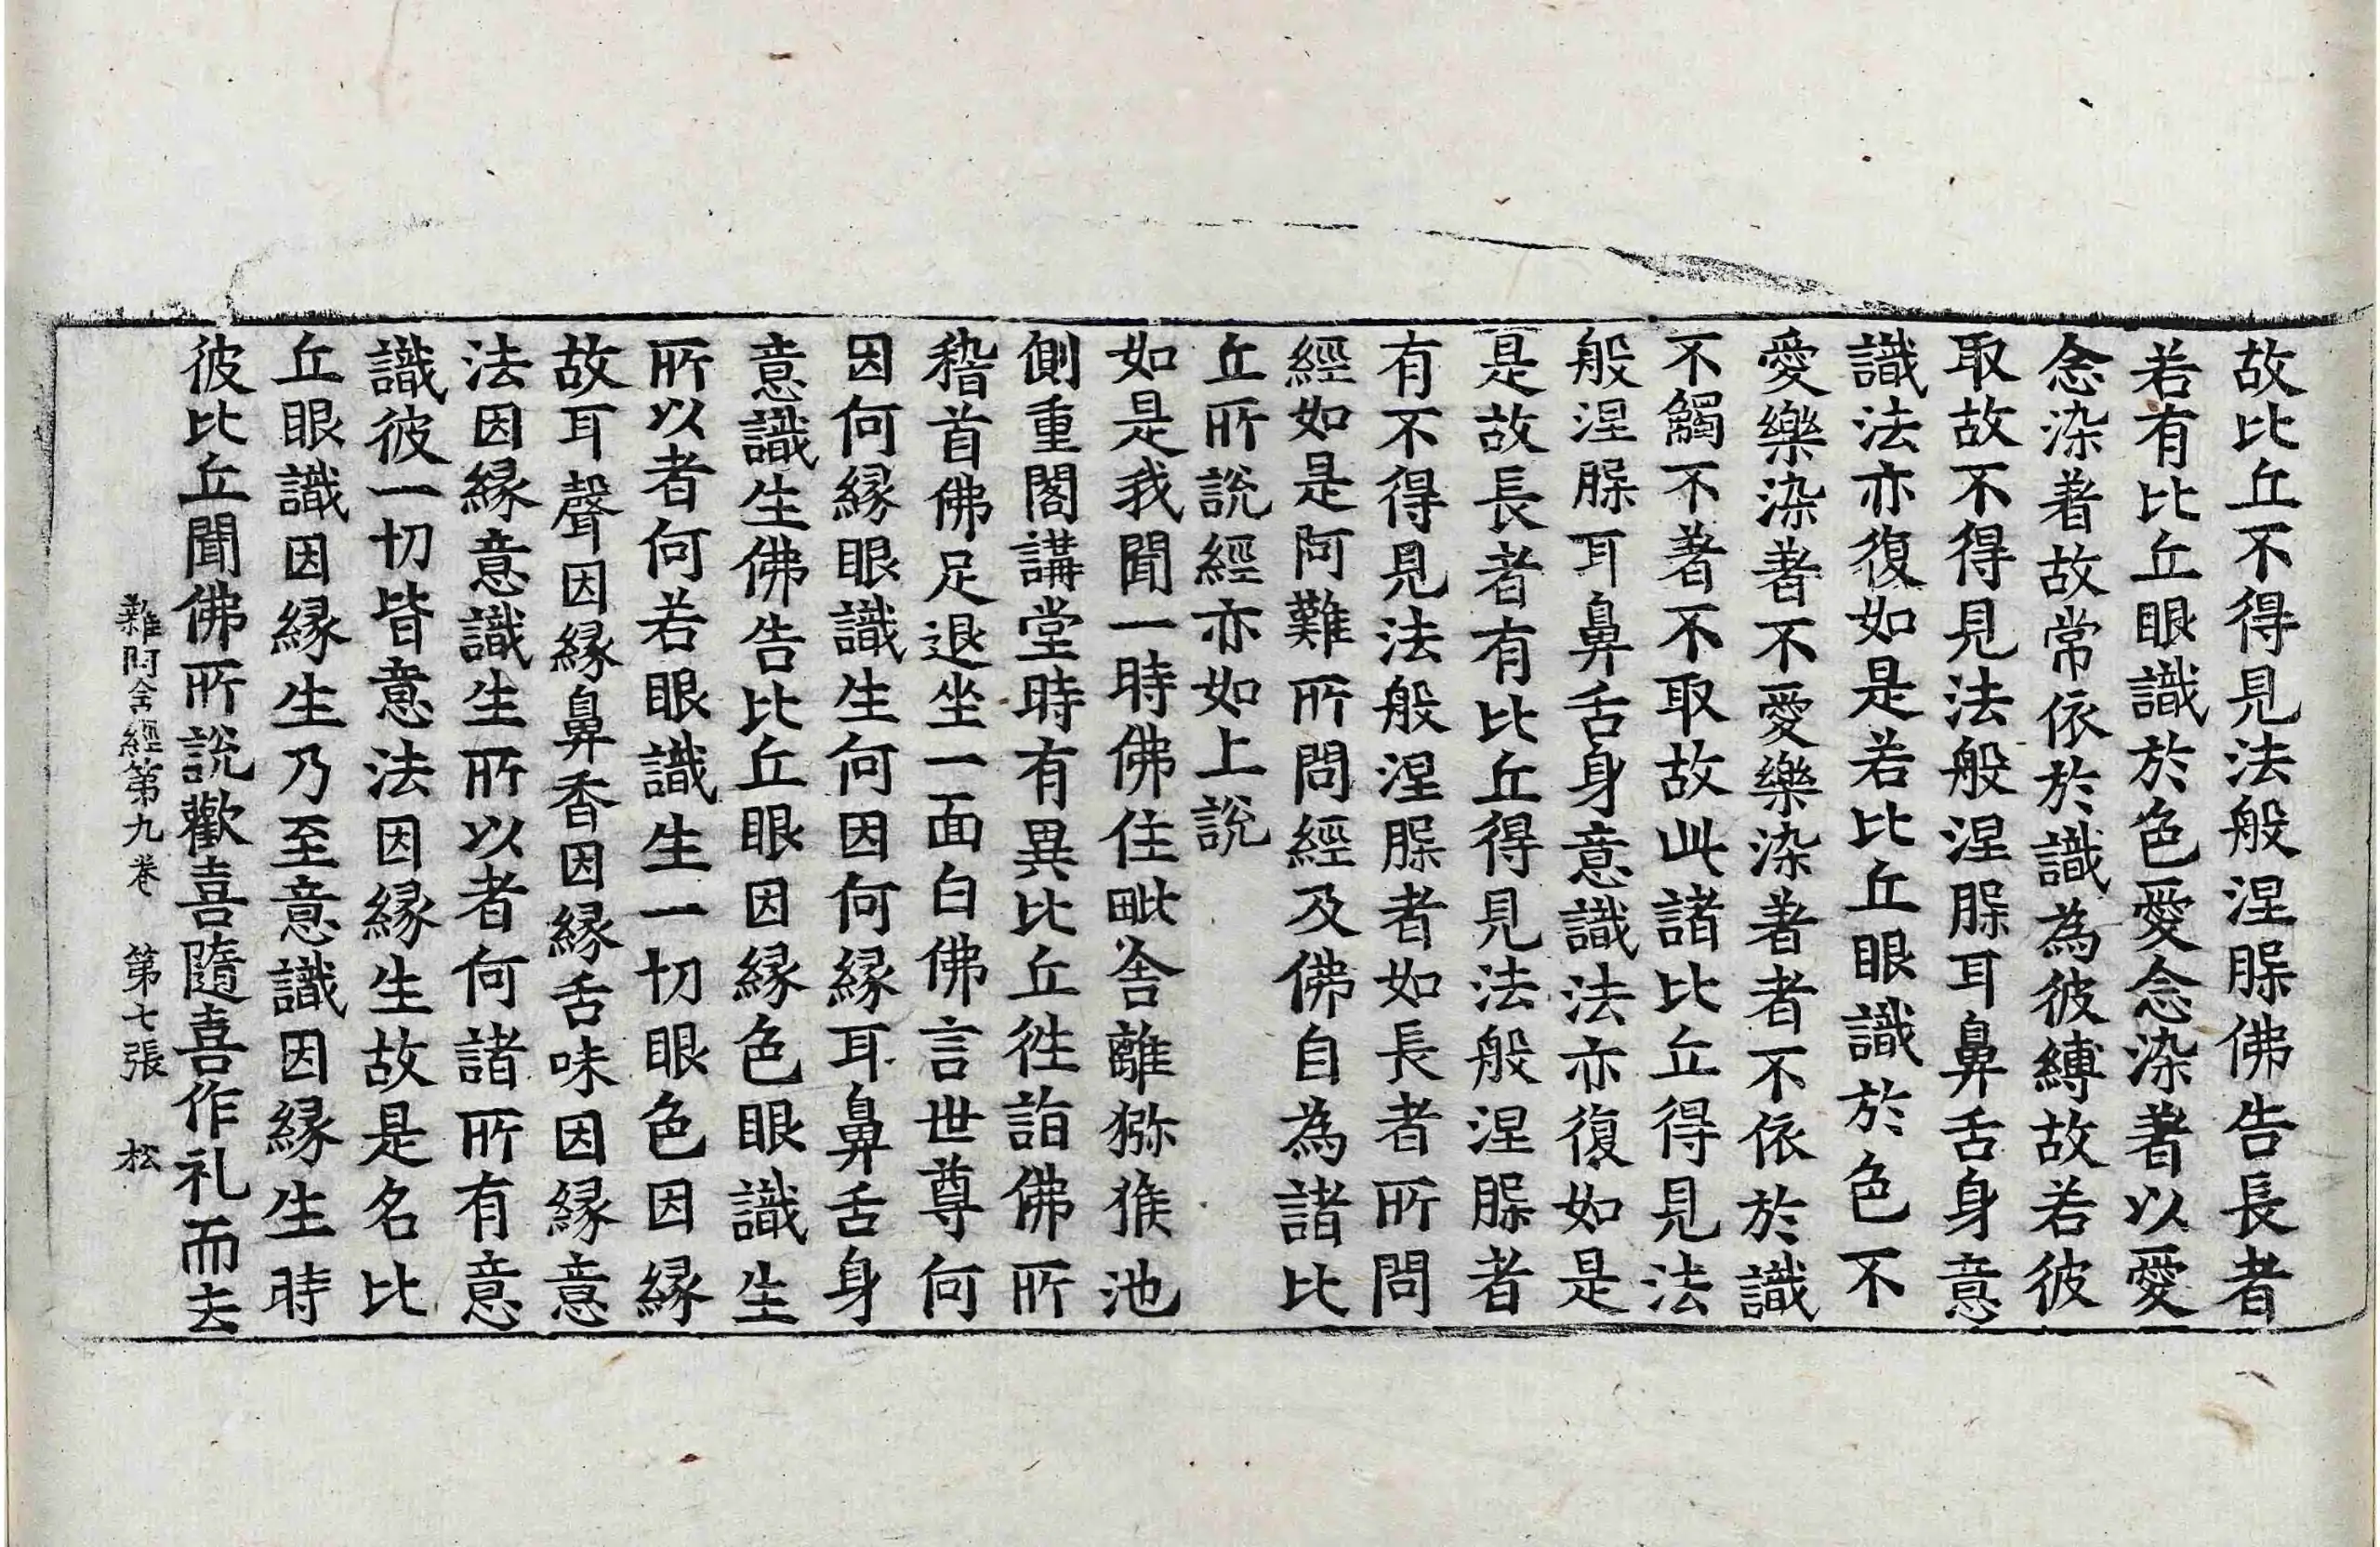 故比丘不得見法般涅槃佛告長者
若有比丘眼識於色愛念染著以愛
念染著故常依於識為彼縛故若彼
取故不得見法般涅槃耳鼻舌身意
識法亦復如是若比丘眼識於色不
愛樂染著不愛樂染著者不依於識
不觸不著不取故此諸比丘得見法
般涅槃耳鼻舌身意識法亦復如是
是故長者有比丘得見法般涅槃者
有不得見法般涅槃者如長者所問
經如是阿難所問經及佛自為諸比
丘所說經亦如上說
如是我聞一時佛住毗舍離獼猴池
側重閣講堂時有異比丘徃詣佛所
稽首佛足退坐一面白佛言世尊何
因何緣眼識生何因何緣耳鼻舌身
意識生佛告比丘眼因緣色眼識生
所以者何若眼識生一切眼色因緣
故耳聲因緣鼻香因緣舌味因緣意
法因緣意識生所以者何諸所有意
識彼一切皆意法因緣生故是名比
丘眼識因緣生乃至意識因緣生時
彼比丘聞佛所說歡喜隨喜作礼而去
雜阿含經第九卷 第七張 松